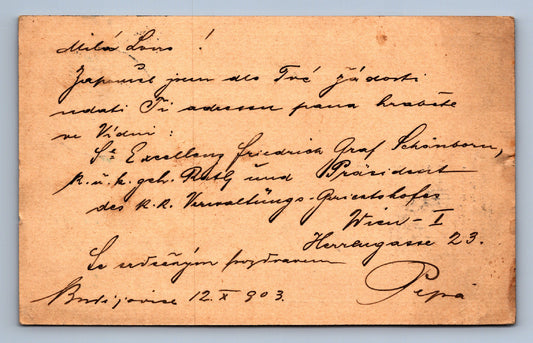 Milá Louis !
Zapomněl jsem dle Tvé žádosti
udati Ti adressu pana hraběte
ve Vídni :
Se Excellenz Friedrich Graf Schönborn,
k. u. k. geh. Rath und Präsident
des k. k. Verwaltungs-Gerichtshofes
Wien – I
Herrengasse 23.
Se srdečným pozdravem
Pepa
Budějovice 12. X 903.